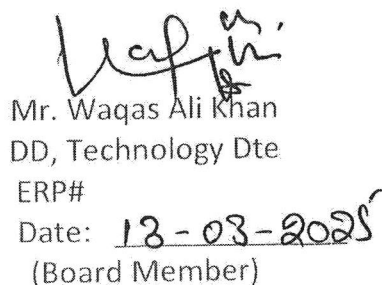 Mr. Waqas Ali Khan
DD, Technology Dte
ERP#
Date: 13-03-2025
(Board Member)